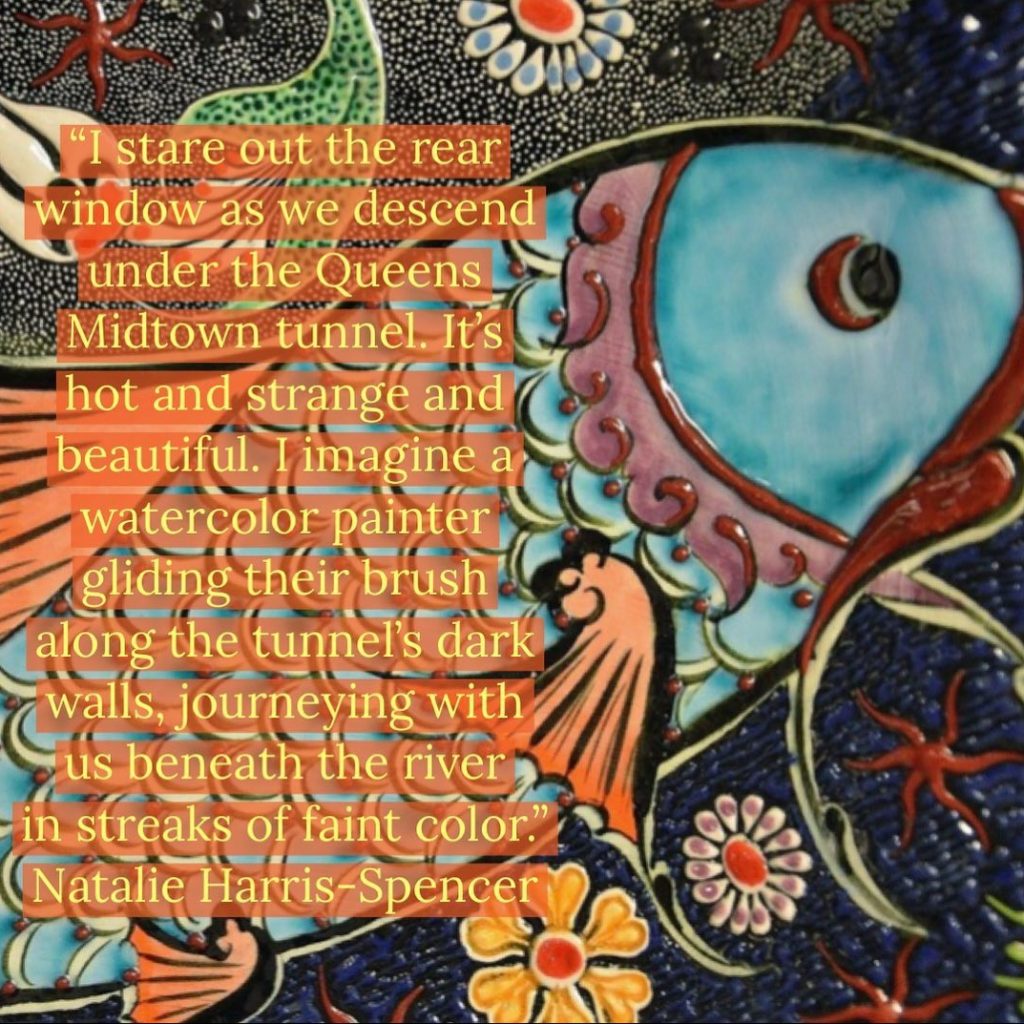 “I stare out the rear
window as we descend
under the Queens
Midtown tunnel. It’s
hot and strange and
beautiful. I imagine a
watercolor painter
gliding their brush
along the tunnel’s dark
walls, journeying with
us beneath the river
in streaks of faint color.”
Natalie Harris-Spencer